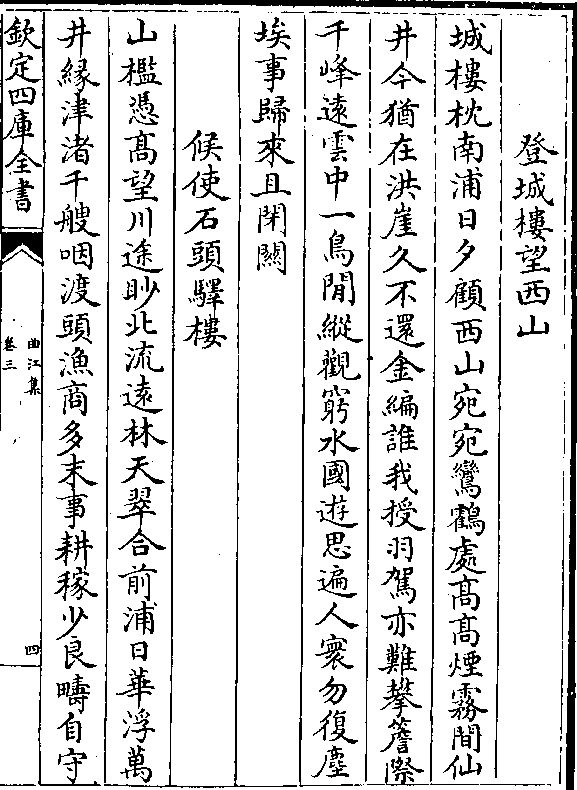 登城樓望西山
城樓枕南浦日夕顧西山宛宛鸞鶴處髙髙煙霧間仙
井今猶在洪崖久不還金編誰我授羽駕亦難攀簷際
千峰逺雲中一鳥閒縱觀窮水國遊思遍人寰勿復塵
埃事歸來且閉闗
候使石頭驛樓
山檻憑髙望川途眇北流逺林天翠合前浦日華浮萬
井縁津渚千艘咽渡頭漁商多末事耕稼少良疇自守
欽定四庫全書
曲江集
卷三
四